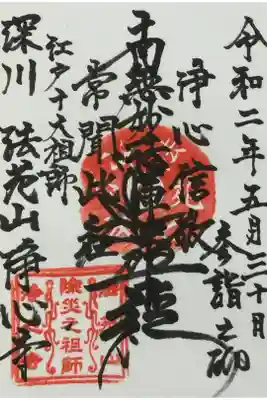 令和二年五月三十日 参詣之砌
浄心信敬
南無妙法蓮華経
常聞此経
江戸十大祖師
深川 法苑山 浄心寺
除災之祖師